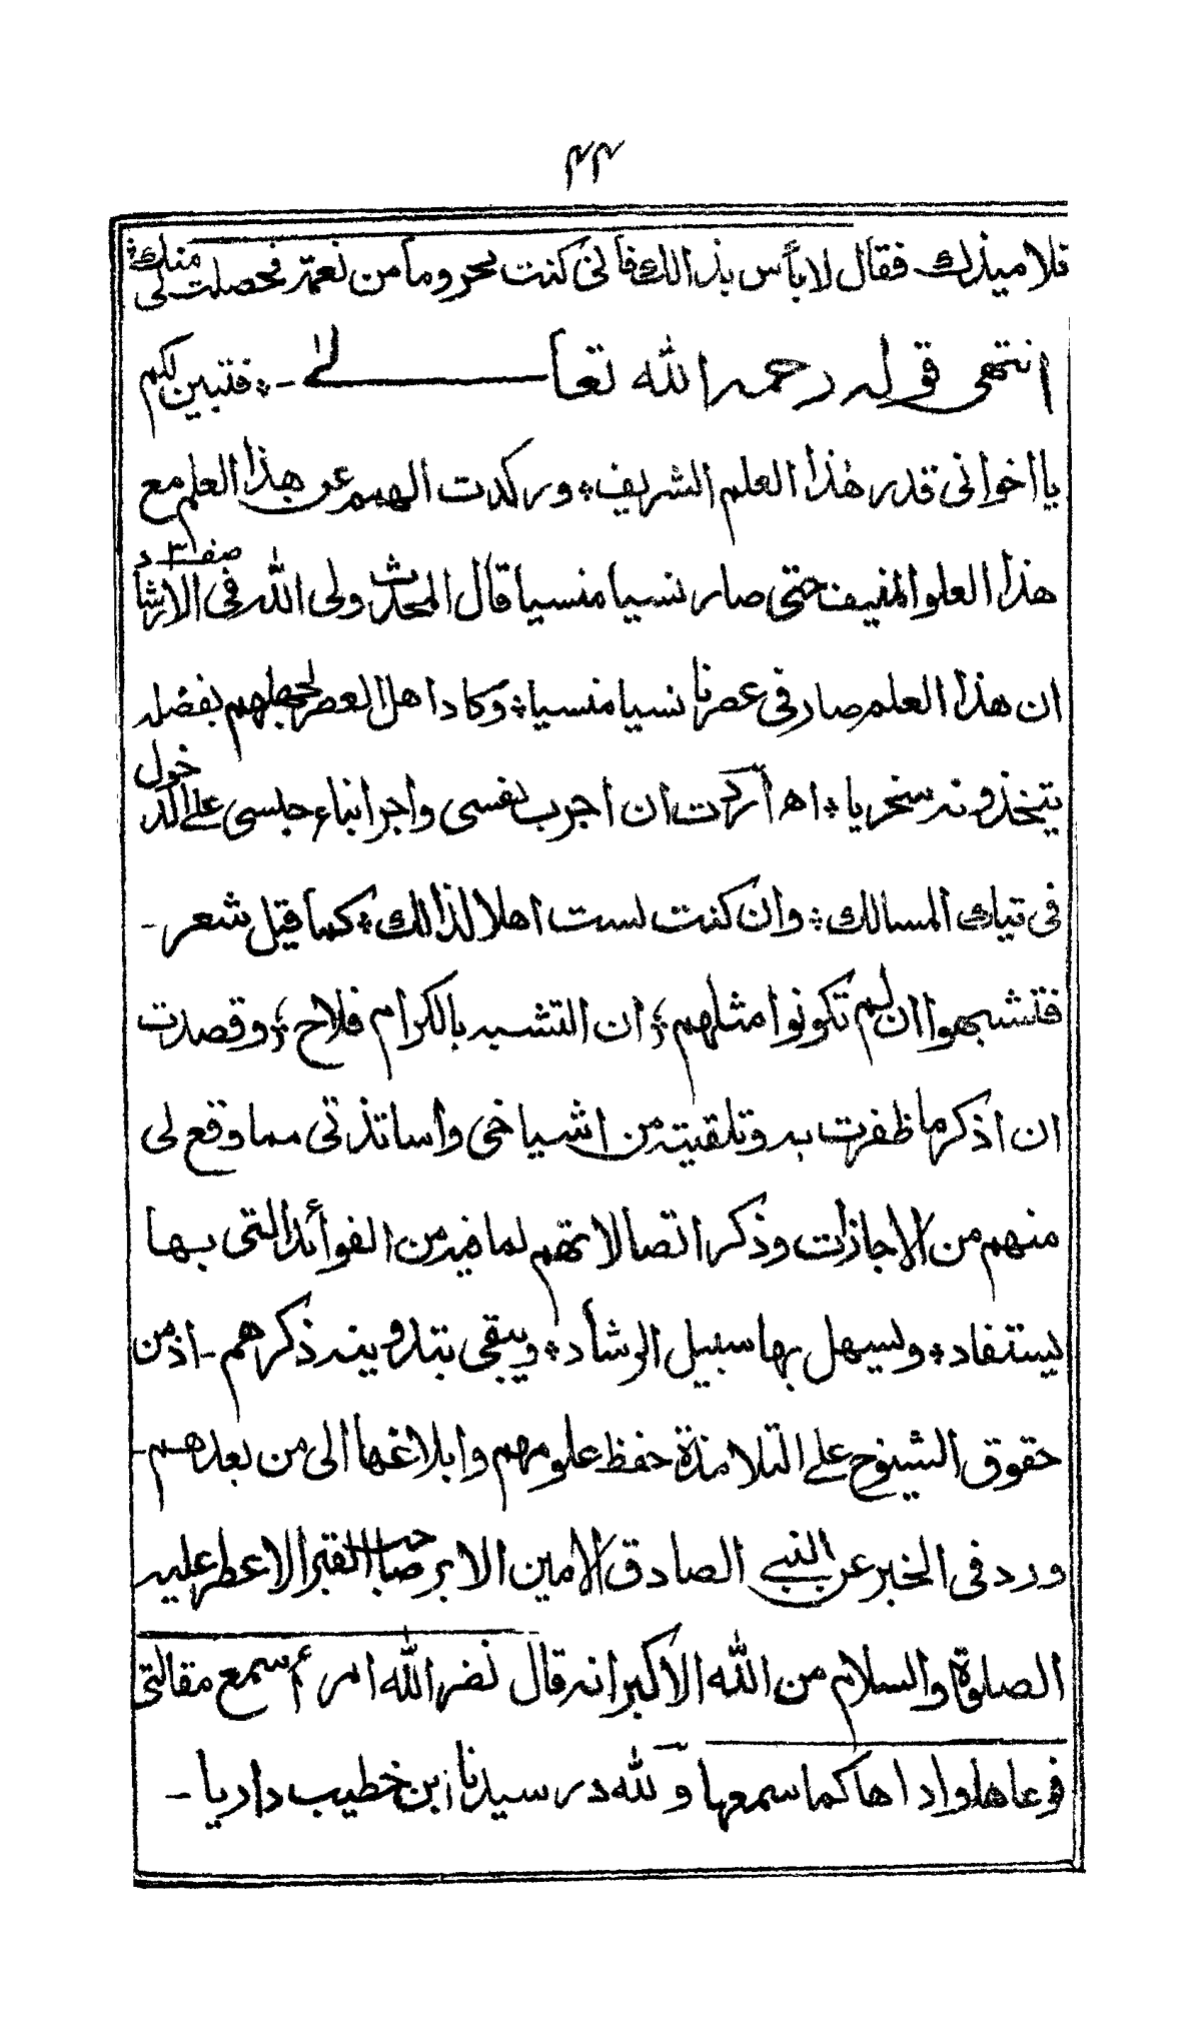 ۴۴
تلاميذك فقال لا بأس بذالك فأنى كنت محروما من نعمة فحصلت لى منك ؞
انتهى قوله رحمه الله تعالىٰ ـ ؞ فتبين لكم
يا اخوانى قدر هٰذا العلم الشريف ؞ وركدت الهمم عن هذا العلم مع
هذا العلو المنيف حتى صار نسيا منسيا قال المحدث ولى الله فى الارشاد صف ٣
ان هذا العلم صار فى عصرنا نسيا منسيا ؞ وكاد اهل العصر لجهلهم بفضله
يتخذونه سخريا ؞ اھ أردت ان اجرب نفسى واجر ابناء جلسى على الدخول
فى تياك المسالك ؞ وان كنت لست اهلا لذالك ؞ كما قيل شعر ـ
فتشبهوا ان لم تكونوا مثلهم ؛ ان التشبه بالكرام فلاح ؛ وقصدت
ان اذكر ما ظفرت به وتلقيته من اشياخى واساتذتى مما وقع لى
منهم من الاجاذات وذكر اتصالاتهم لما فيه من الفوائد التى بها
يستفاد ؞ ويسهل بها سبيل الرشاد ؞ ويبقى بتدوينه ذكرهم ـ اذ من
حقوق الشيوخ على التلامذة حفظ علومهم وابلاغها الى من بعدهم ـ
ورد فى الخبر عن النبى الصادق الامين الابر صاحب القبر الاعطر عليه
الصلوة والسلام من الله الاكبر انه قال نضر الله امرأ سمع مقالتى
فوعاها واداها كما سمعها وللّٰه در سيدنا ابن خطيب داريا ـ